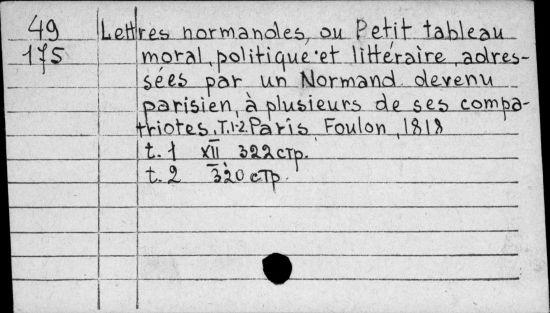 49 Lettres normandes, ou Petit tableau
175 moral, politique et littéraire, adres-
sées par un Normand devenu
parisien, à plusieurs de ses compa-
triotes. T.1-2. Paris, Foulon, 1818
t. 1 XII 322 стр.
t. 2 320 стр.